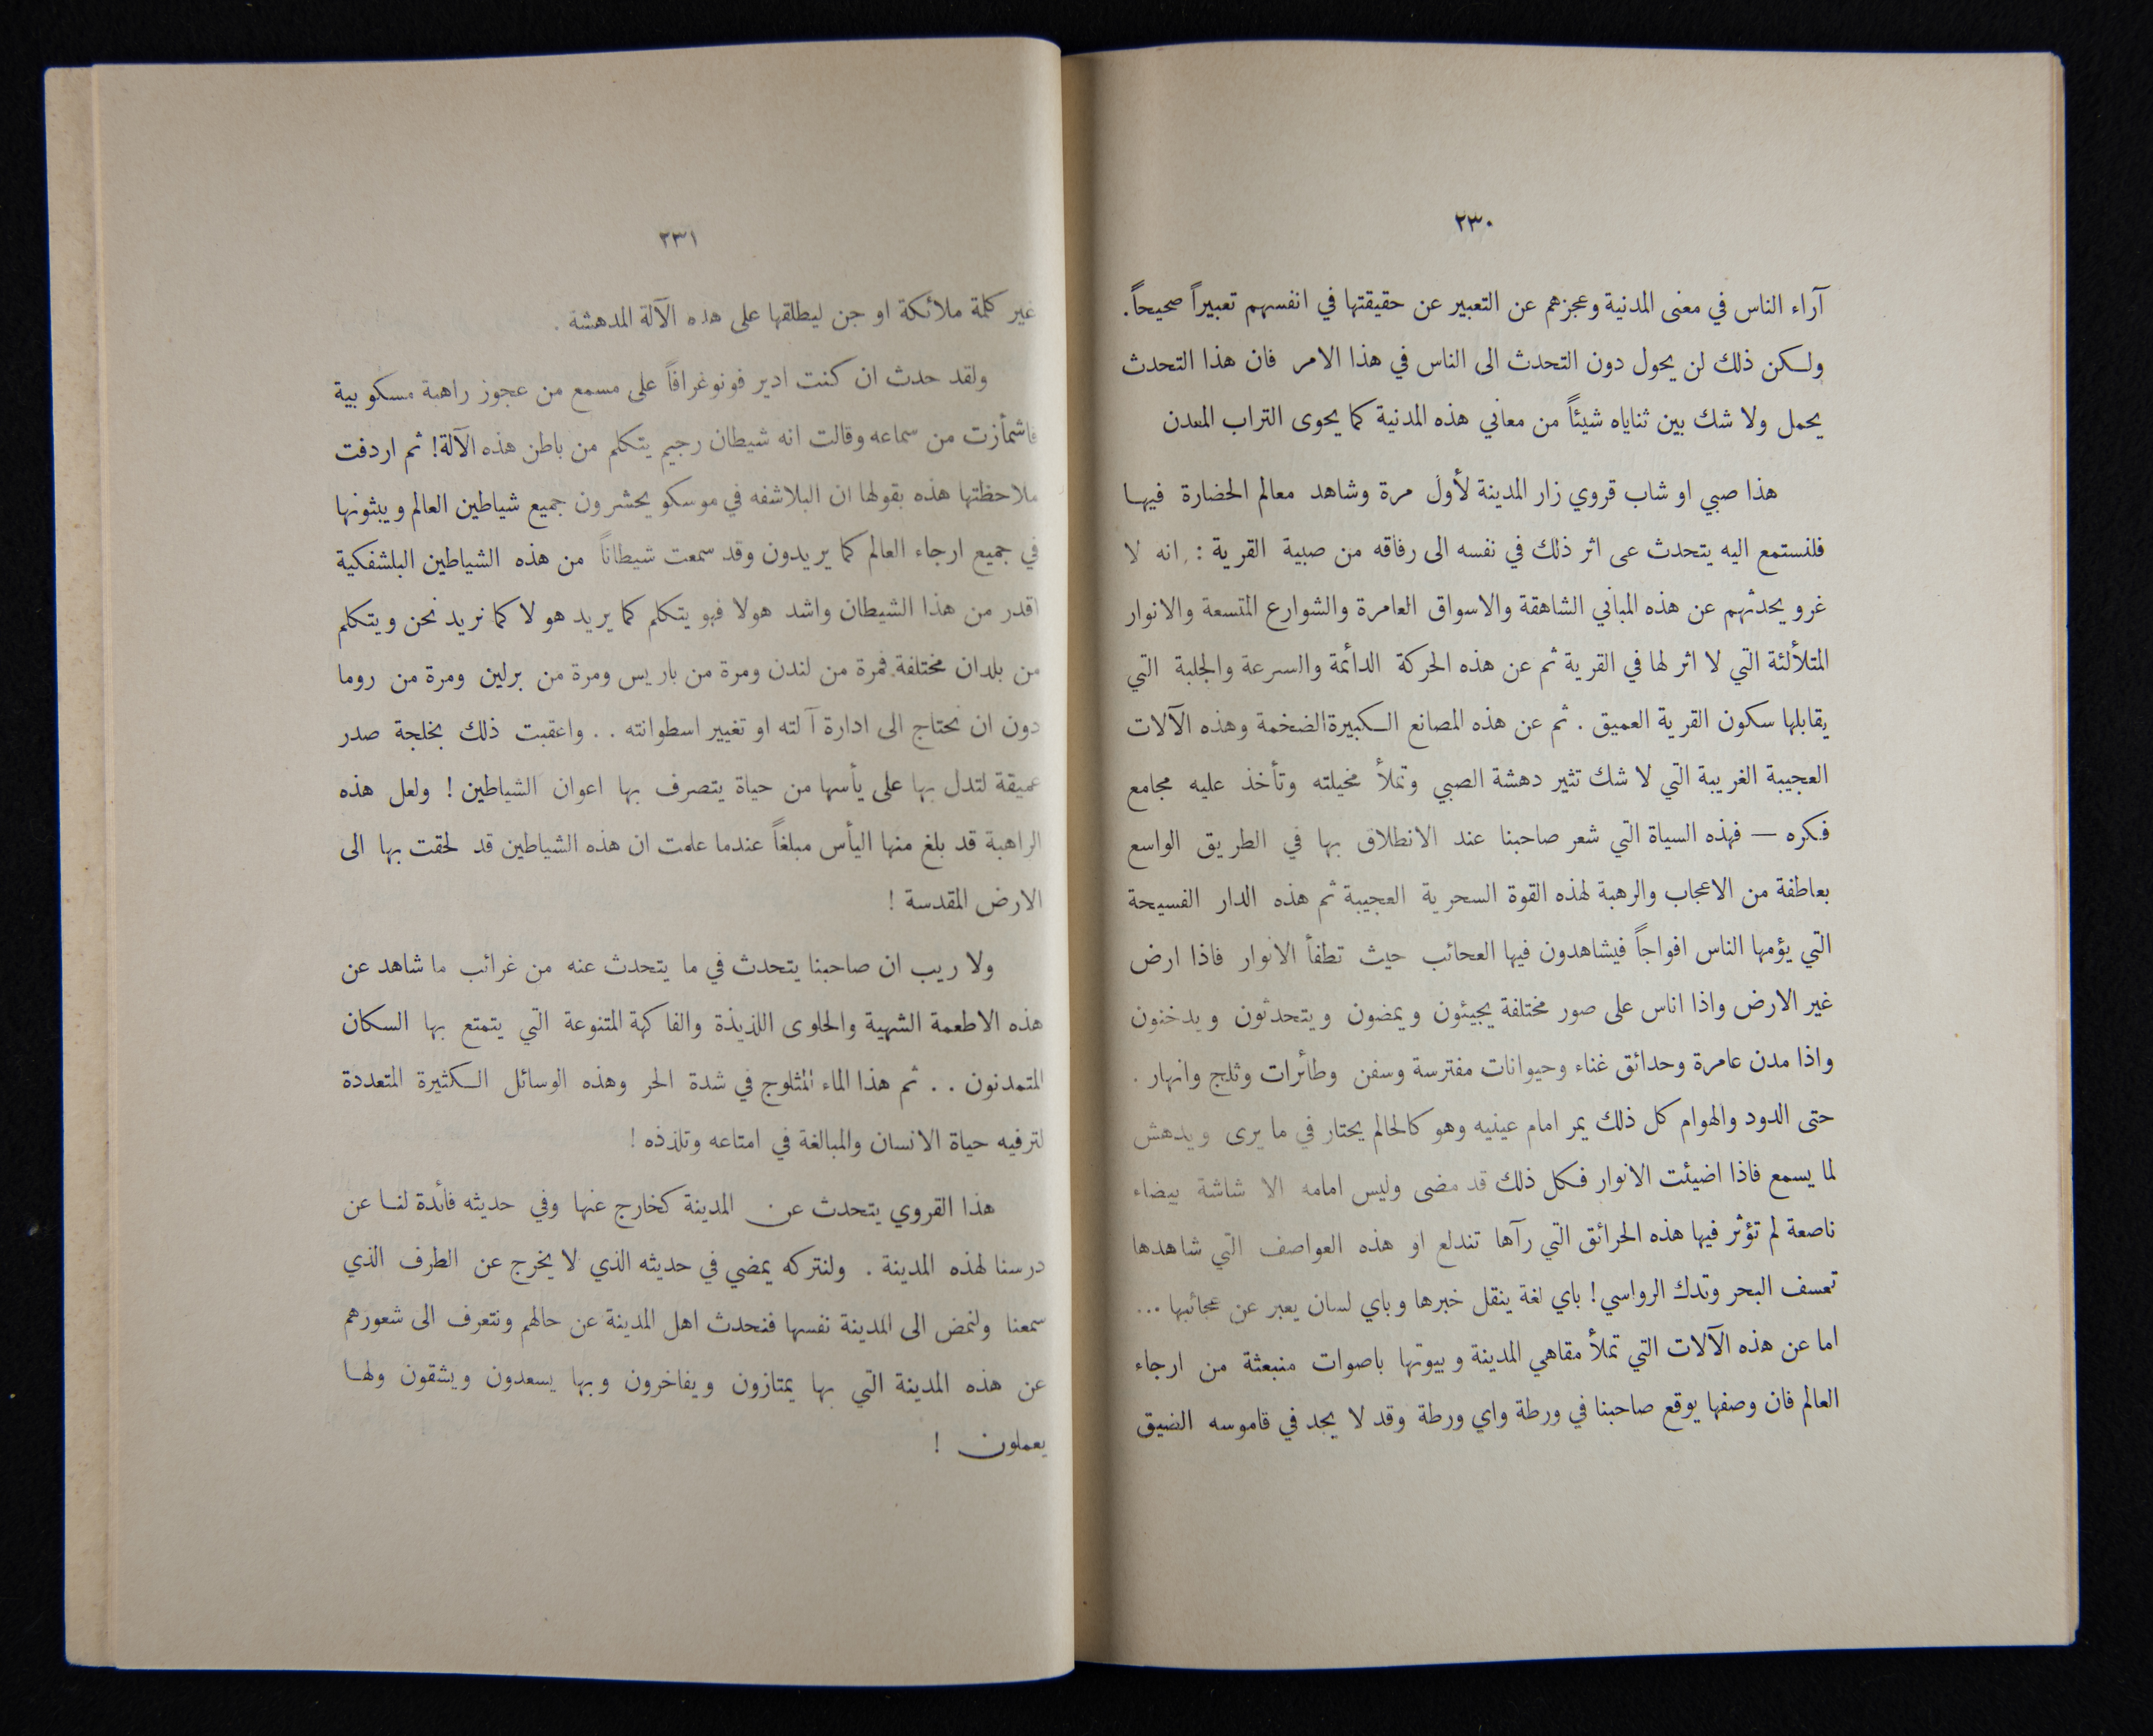 ٢٣٠
آراء الناس في معنى المدنية وعجزهم عن التعبير عن حقيقتها في انفسهم تعبيراً صحيحاً.
ولكن ذلك لن يحول دون التحدث الى الناس في هذا الامر فان هذا التحدث
يحمل ولا شك بين ثناياه شيئاً من معاني هذه المدنية كما يحوى التراب المعدن
هذا صبي او شاب قروي زار المدينة لأول مرة وشاهد معالم الحضارة فيها
فلنستمع اليه يتحدث عى اثر ذلك في نفسه الى رفاقه من صبية القرية : انه لا
غرو يحدثهم عن هذه المباني الشاهقة والاسواق العامرة والشوارع المتسعة والانوار
المتلألئة التي لا اثر لها في القرية ثم عن هذه الحركة الدائمة والسرعة والجلبة التي
يقابلها سكون القرية العميق . ثم عن هذه المصانع الكبيرة الضخمة وهذه الآلات
العجيبة الغريبة التي لا شك تثير دهشة الصبي وتملأ مخيلته وتأخذ عليه مجامع
فكره — فهذه السياة التي شعر صاحبنا عند الانطلاق بها في الطريق الواسع
بعاطفة من الاعجاب والرهبة لهذه القوة السحرية العجيبة ثم هذه الدار الفسيحة
التي يؤمها الناس افواجاً فيشاهدون فيها العجائب حيث تطفأ الانوار فاذا ارض
غير الارض واذا اناس على صور مختلفة يجيئون ويمضون ويتحدثون ويدخنون
واذا مدن عامرة وحدائق غناء وحيوانات مفترسة وسفن وطائرات وثلج وانهار .
حتى الدود والهوام كل ذلك يمر امام عينيه وهو كالحالم يحتار في ما يرى ويدهش
لما يسمع فاذا اضيئت الانوار فكل ذلك قد مضى وليس امامه الا شاشة بيضاء
ناصعة لم تؤثر فيها هذه الحرائق التي رآها تندلع او هذه العواصف التي شاهدها
تعسف البحر وتدك الرواسي ! باي لغة ينقل خبرها وباي لسان يعبر عن عجائبها ...
اما عن هذه الآلات التي تملأ مقاهي المدينة وبيوتها باصوات منبعثة من ارجاء
العالم فان وصفها يوقع صاحبنا في ورطة واي ورطة وقد لا يجد في قاموسه الضيق
٢٣١
غير كلمة ملائكة او جن ليطلقها على هذه الآلة المدهشة .
ولقد حدث ان كنت ادير فونوغرافاً على مسمع من عجوز راهبة مسكوبية
فاشمأزت من سماعه وقالت انه شيطان رجيم يتكلم من باطن هذه الآلة! ثم اردفت
ملاحظتها هذه بقولها ان البلاشفه في موسكو يحشرون جميع شياطين العالم ويبثونها
في جميع ارجاء العالم كما يريدون وقد سمعت شيطاناً من هذه الشياطين البلشفكية
اقدر من هذا الشيطان واشد هولا فهو يتكلم كما يريد هو لا كما نريد نحن ويتكلم
من بلدان مختلفة فمرة من لندن ومرة من باريس ومرة من برلين ومرة من روما
دون ان نحتاج الى ادارة آلته او تغيير اسطوانته . . واعقبت ذلك بخلجة صدر
عميقة لتدل بها على يأسها من حياة يتصرف بها اعوان الشياطين ! ولعل هذه
الراهبة قد بلغ منها اليأس مبلغاً عندما علمت ان هذه الشياطين قد لحقت بها الى
الارض المقدسة !
ولا ريب ان صاحبنا يتحدث في ما يتحدث عنه من غرائب ما شاهد عن
هذه الاطعمة الشهية والحلوى اللذيذة والفاكهة المتنوعة التي يتمتع بها السكان
المتمدنون . . ثم هذا الماء المثلوج في شدة الحر وهذه الوسائل الكثيرة المتعددة
لترفيه حياة الانسان والمبالغة في امتاعه وتلذذه !
هذا القروي يتحدث عن المدينة كخارج عنها وفي حديثه فائدة لنا عن
درسنا لهذه المدينة . ولنتركه يمضي في حديثه الذي لا يخرج عن الطرف الذي
سمعنا ولنمض الى المدينة نفسها فنحدث اهل المدينة عن حالهم ونتعرف الى شعورهم
عن هذه المدينة التي بها يمتازون ويفاخرون وبها يسعدون ويشقون ولها
يعملون !